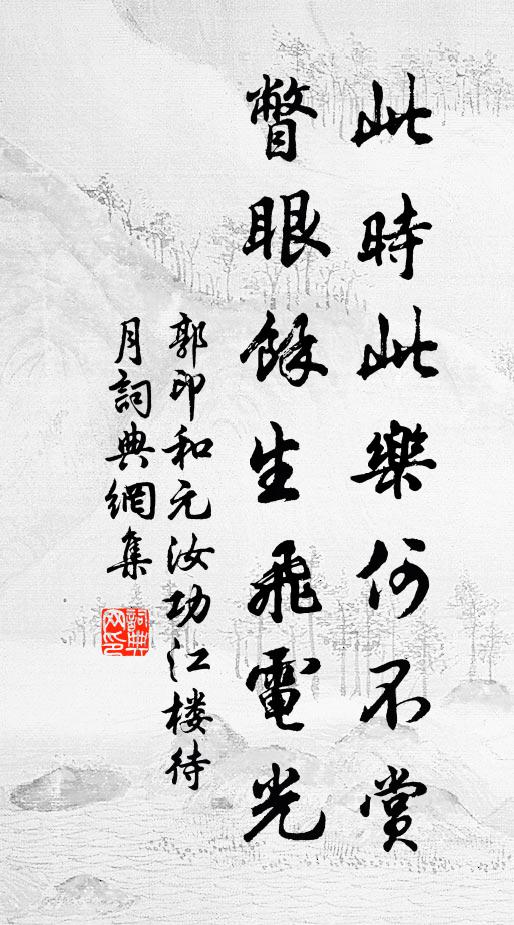 此時此樂何不賞
瞥眼餘生飛電光
郭印和元汝功江楼待
月詞典網集
詞典网印